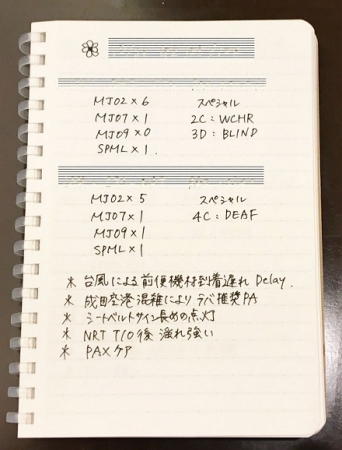 MJ02 × 6 スペシャル
MJ07 × 1 2C : WCHR
MJ09 × 0 3D : BLIND
SPML × 1 .
MJ02 × 5 スペシャル
MJ07 × 1 4C : DEAF
MJ09 × 1
SPML × 1
* 台風による前便機材到着遅れ Delay.
* 成田空港混雑により ラバ推奨PA
* シートベルトサイン長めの点灯
* NRT T/O後 揺れ強い
* PAXケア